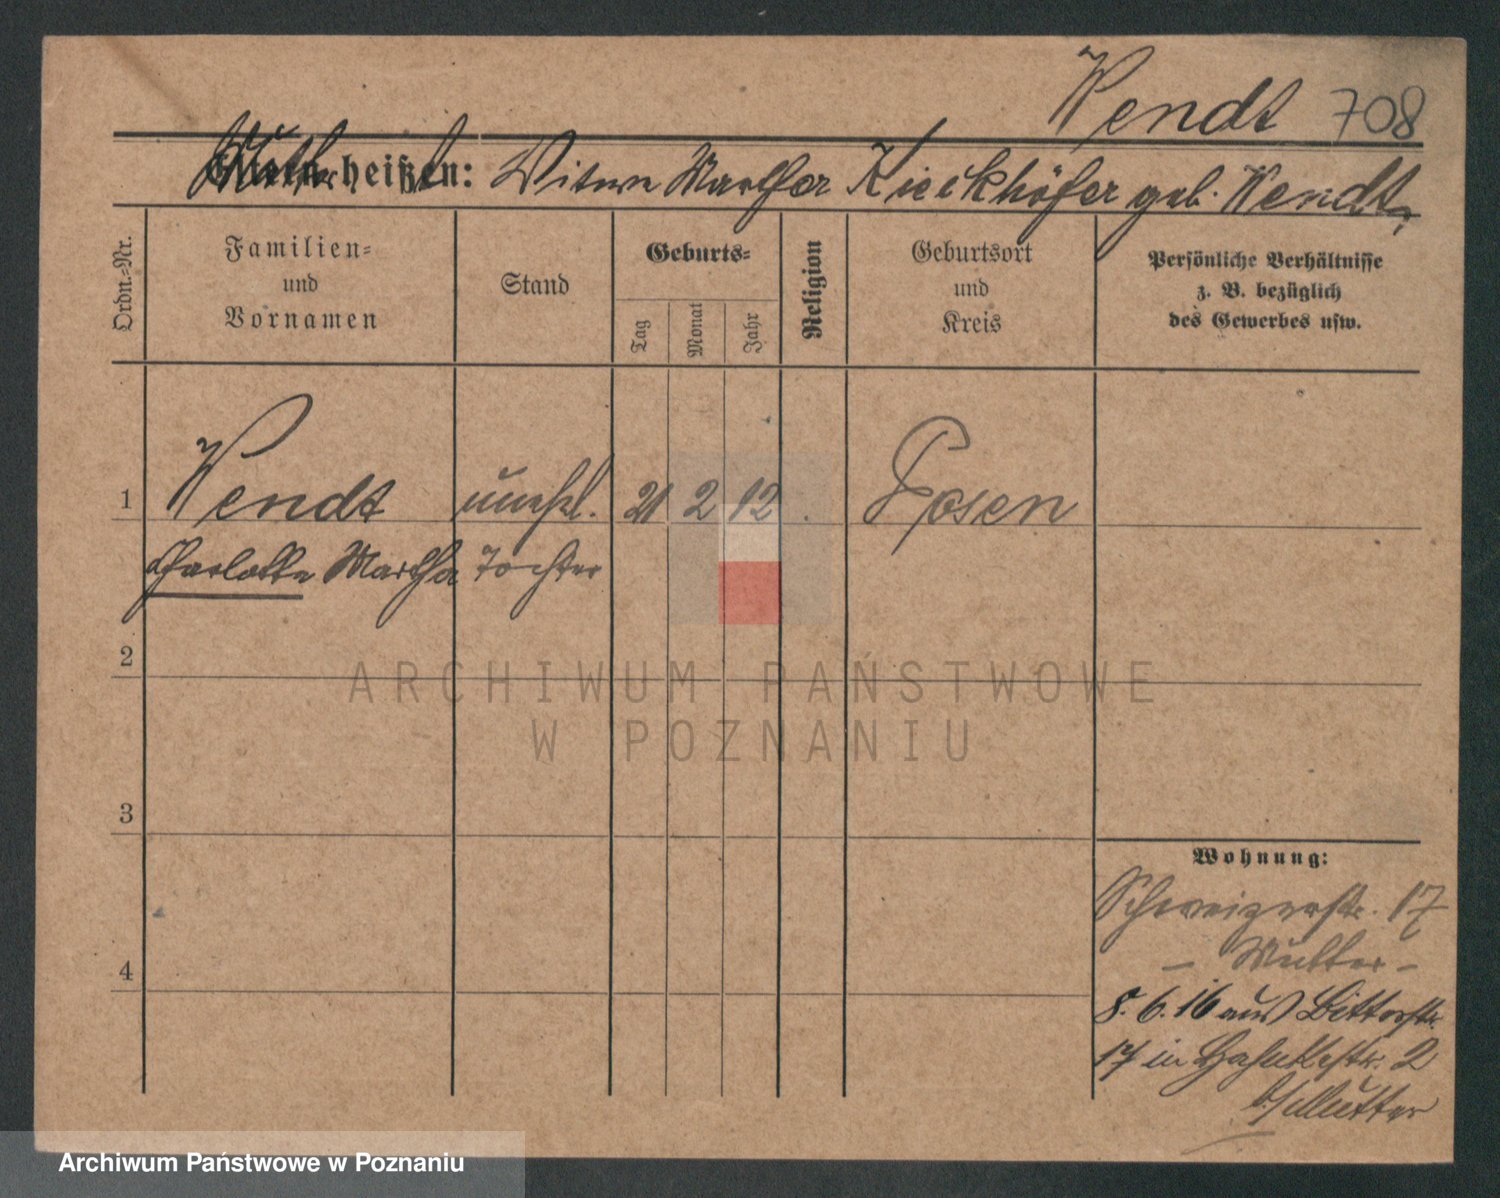 Wendt 708
Eltern heißen: Witwe Martha Kieckhöfer geb. Wendt,
Ordn.-Nr.
Familien-
und
Vornamen
Stand
Geburts-
Tag
Monat
Jahr
Religion
Geburtsort
und
Kreis
Persönliche Verhältnisse
z. B. bezüglich
des Gewerbes usw.
1 Wendt unehl. 21 2 12 Posen
Charlotte Martha Tochter
2
3
4
Wohnung:
Schweizerstr. 17
– Mutter –
8. 6. 16 aus
17 in 2
b/Mutter
ARCHIWUM PAŃSTWOWE
W POZNANIU
Archiwum Państwowe w Poznaniu